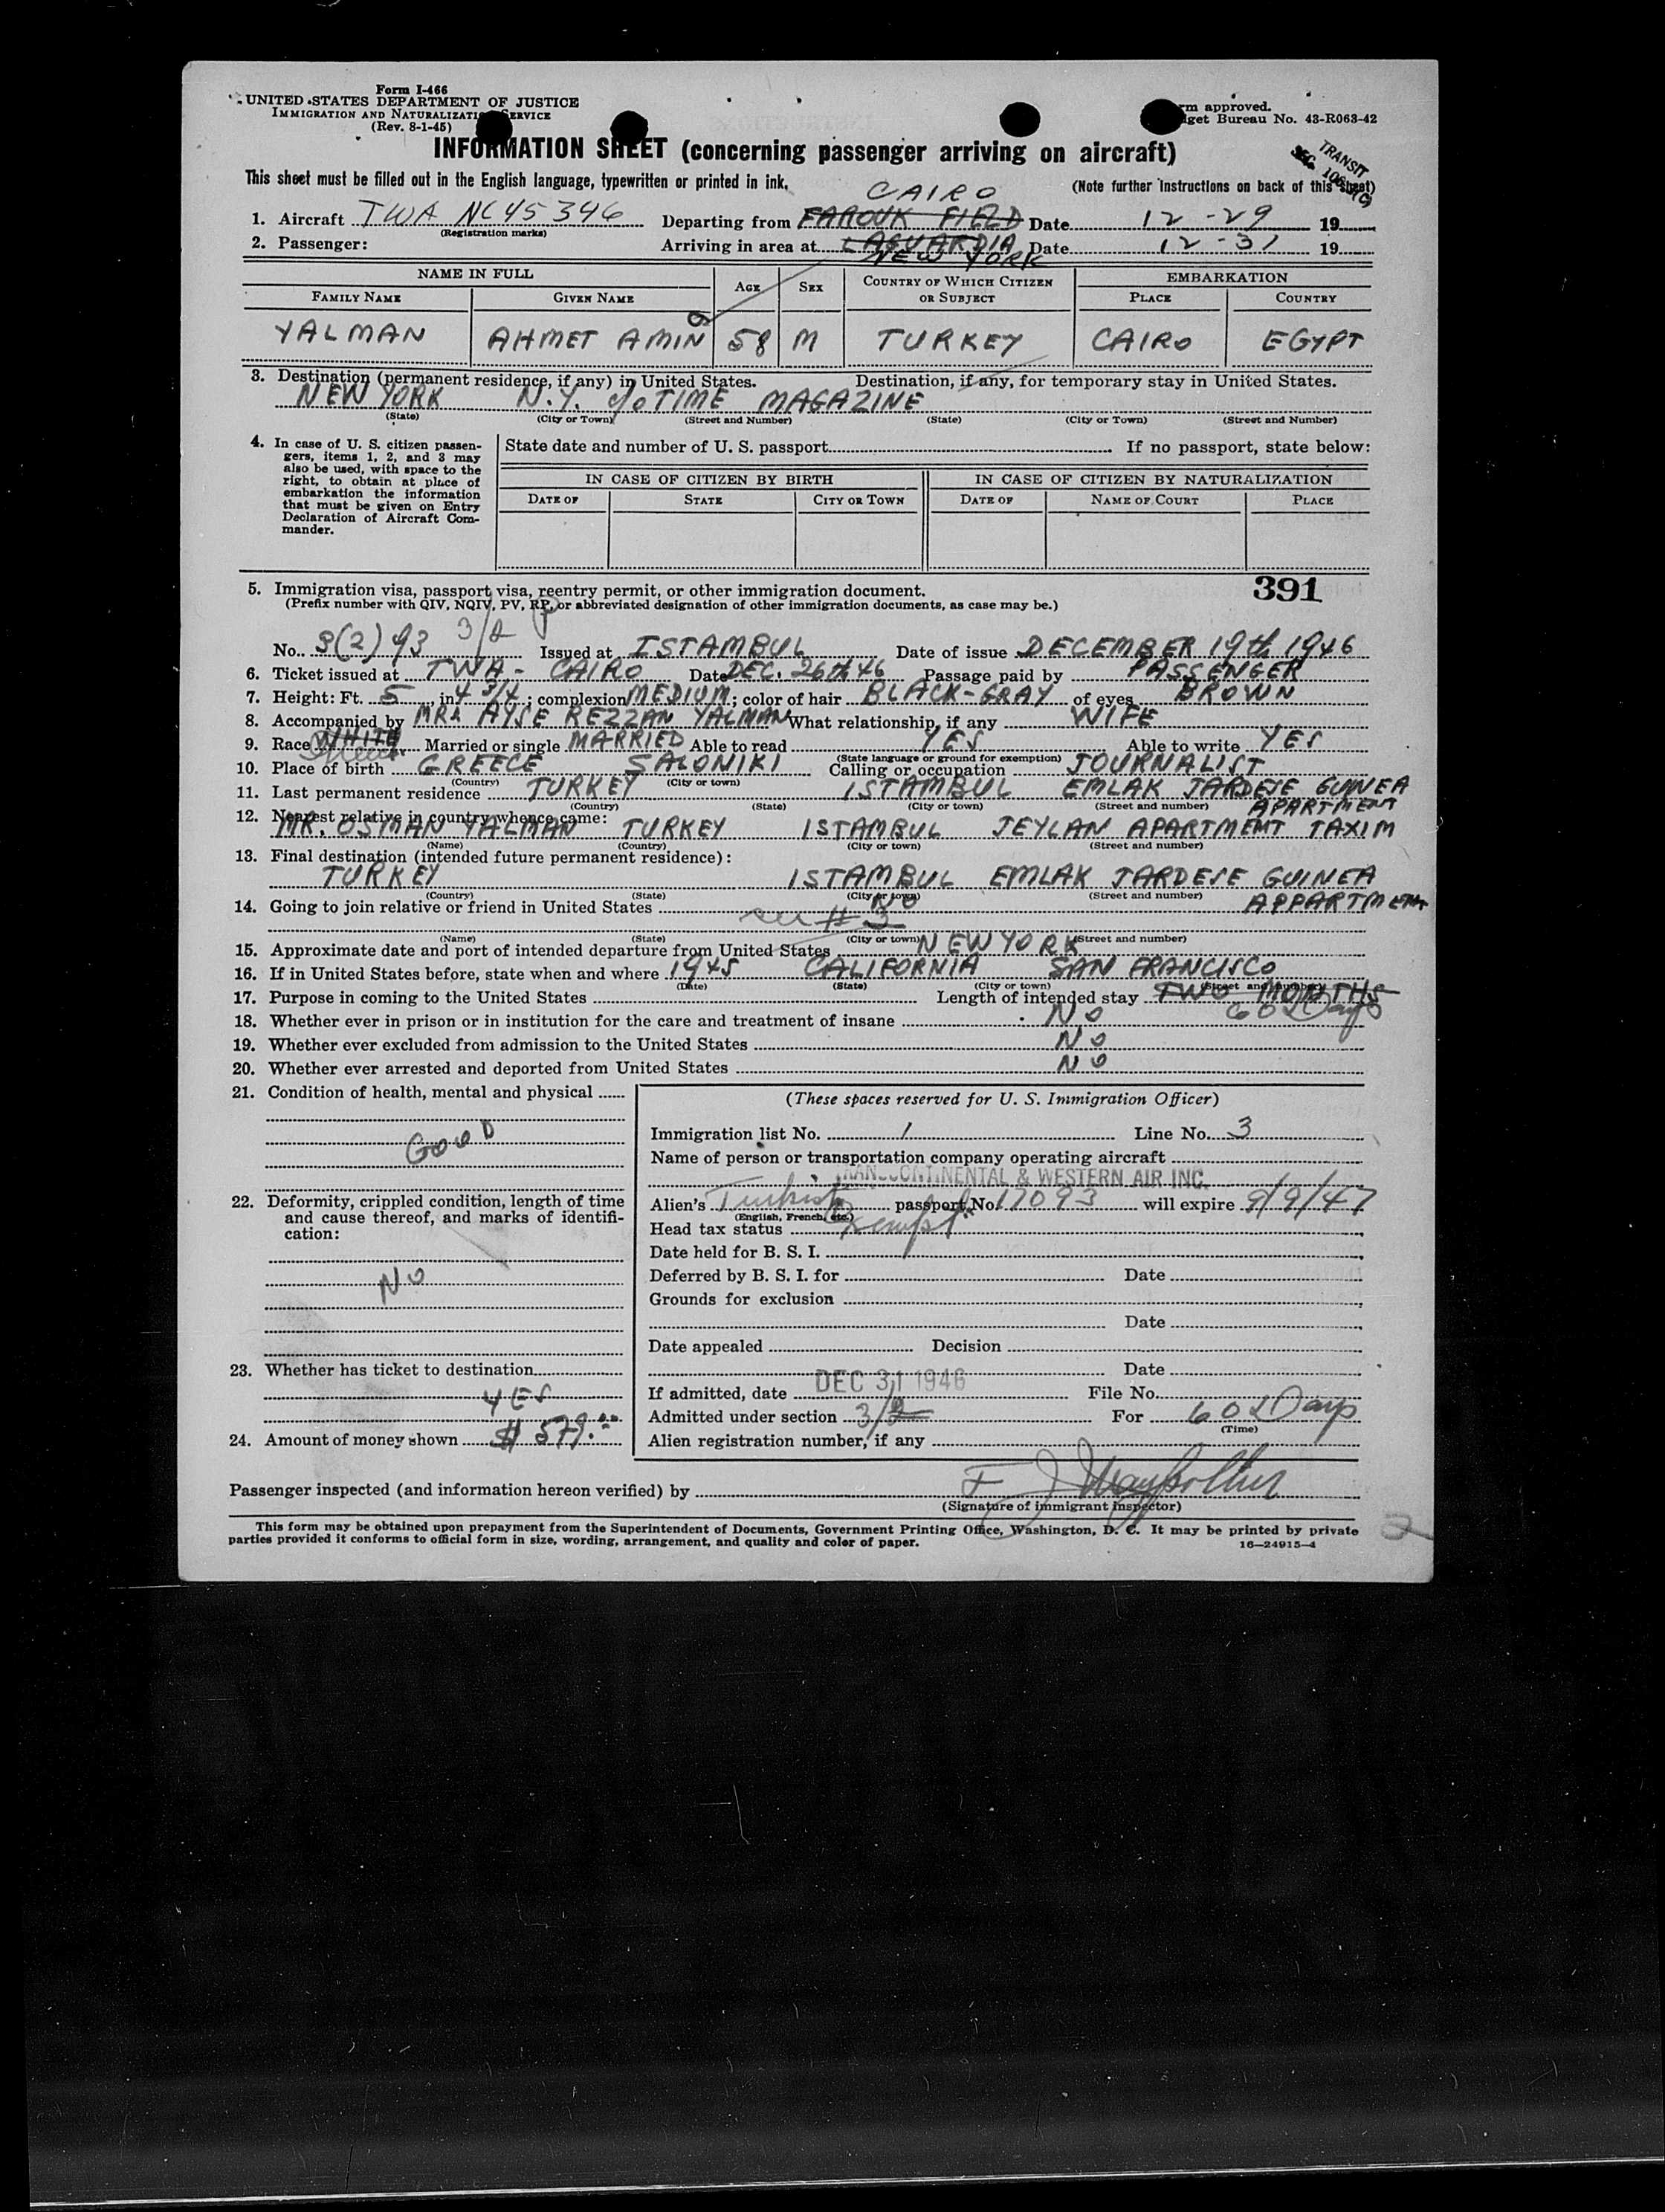 Form I-466
UNITED STATES DEPARTMENT OF JUSTICE
IMMIGRATION AND NATURALIZATION SERVICE
(Rev. 8-1-45)
approved.
Bureau No. 43-R063-42
INFORMATION SHEET (concerning passenger arriving on aircraft)
TRANSIT
This sheet must be filled out in the English language, typewritten or printed in ink.
(Note further instructions on back of this sheet)
CAIRO
1. Aircraft TWA NC45346 Departing from FAROUK FIELD Date 12-29 19
(Registration marks)
2. Passenger: Arriving in area at LAGUARDIA Date 12-31 19
NEW YORK
NAME IN FULL AGE SEX COUNTRY OF WHICH CITIZEN OR SUBJECT EMBARKATION
FAMILY NAME GIVEN NAME PLACE COUNTRY
YALMAN AHMET AMIN 58 M TURKEY CAIRO EGYPT
3. Destination (permanent residence, if any) in United States. Destination, if any, for temporary stay in United States.
NEW YORK N.Y. c/o TIME MAGAZINE
(State) (City or Town) (Street and Number) (State) (City or Town) (Street and Number)
4. In case of U. S. citizen passen-
gers, items 1, 2, and 3 may
also be used, with space to the
right, to obtain at place of
embarkation the information
that must be given on Entry
Declaration of Aircraft Com-
mander.
State date and number of U. S. passport If no passport, state below:
IN CASE OF CITIZEN BY BIRTH IN CASE OF CITIZEN BY NATURALIZATION
DATE OF STATE CITY OR TOWN DATE OF NAME OF COURT PLACE
5. Immigration visa, passport visa, reentry permit, or other immigration document. 391
(Prefix number with QIV, NQIV, PV, RP, or abbreviated designation of other immigration documents, as case may be.)
3/2
No. 3(2) 93 Issued at ISTAMBUL Date of issue DECEMBER 19th 1946
6. Ticket issued at TWA - CAIRO Date DEC. 26th 46 Passage paid by PASSENGER
7. Height: Ft. 5, in 4 3/4; complexion MEDIUM; color of hair BLACK-GRAY of eyes BROWN
8. Accompanied by MRS AYSE REZZAN YALMAN What relationship, if any WIFE
9. Race WHITE Married or single MARRIED Able to read YES Able to write YES
(State language or ground for exemption)
10. Place of birth GREECE SALONIKI Calling or occupation JOURNALIST
(Country) (City or town)
11. Last permanent residence TURKEY ISTAMBUL EMLAK JARDESE GUINEA
APARTMENT
(Country) (State) (City or town) (Street and number)
12. Nearest relative in country whence came:
MR. OSMAN YALMAN TURKEY ISTAMBUL JEYLAN APARTMENT TAXIM
(Name) (Country) (City or town) (Street and number)
13. Final destination (intended future permanent residence):
TURKEY ISTAMBUL EMLAK JARDESE GUINEA
APPARTMENT
(Country) (State) (City or town) (Street and number)
14. Going to join relative or friend in United States NO
see # 3
(Name) (State) (City or town) (Street and number)
15. Approximate date and port of intended departure from United States NEW YORK
16. If in United States before, state when and where 1945 CALIFORNIA SAN FRANCISCO
(Date) (State) (City or town) (Street and number)
17. Purpose in coming to the United States Length of intended stay TWO MONTHS
60 Days
18. Whether ever in prison or in institution for the care and treatment of insane NO
19. Whether ever excluded from admission to the United States NO
20. Whether ever arrested and deported from United States NO
21. Condition of health, mental and physical
GOOD
22. Deformity, crippled condition, length of time
and cause thereof, and marks of identifi-
cation:
NO
23. Whether has ticket to destination
YES
24. Amount of money shown $ 579.00
(These spaces reserved for U. S. Immigration Officer)
Immigration list No. 1 Line No. 3
Name of person or transportation company operating aircraft
TRANSCONTINENTAL & WESTERN AIR INC.
Alien's Turkish passport No. 17093 will expire 9/9/47
(English, French, etc.)
Head tax status Exempt
Date held for B. S. I.
Deferred by B. S. I. for Date
Grounds for exclusion
Date
Date appealed Decision
Date
If admitted, date DEC 31 1946 File No.
Admitted under section 3/2 For 60 Days
(Time)
Alien registration number, if any
Passenger inspected (and information hereon verified) by
(Signature of immigrant inspector)
This form may be obtained upon prepayment from the Superintendent of Documents, Government Printing Office, Washington, D. C. It may be printed by private
parties provided it conforms to official form in size, wording, arrangement, and quality and color of paper.
16—24915-4
2